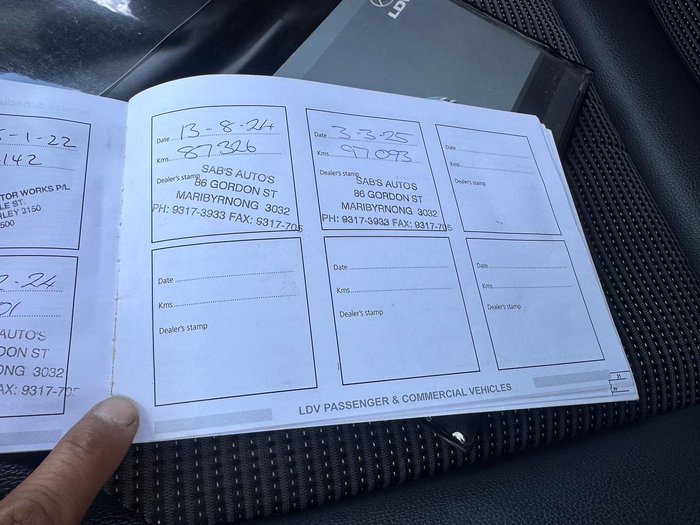 LDV
Service Schedu
-1-22
142
TOR WORKS P/L
LE ST.
RLEY 3150
500
2-24
01
AUTO'S
DON ST
ONG 3032
AX: 9317-705
Date 13-8-24
Kms 87326
Dealer's stamp
SAB'S AUTO'S
86 GORDON ST
MARIBYRNONG 3032
PH: 9317-3933 FAX: 9317-705
Date 3-3-25
Kms 97093
Dealer's stamp
SAB'S AUTO'S
86 GORDON ST
MARIBYRNONG 3032
PH: 9317-3933 FAX: 9317-705
Date
Kms
Dealer's stamp
Date
Kms
Dealer's stamp
Date
Kms
Dealer's stamp
Date
Kms
Dealer's stamp
LDV PASSENGER & COMMERCIAL VEHICLES